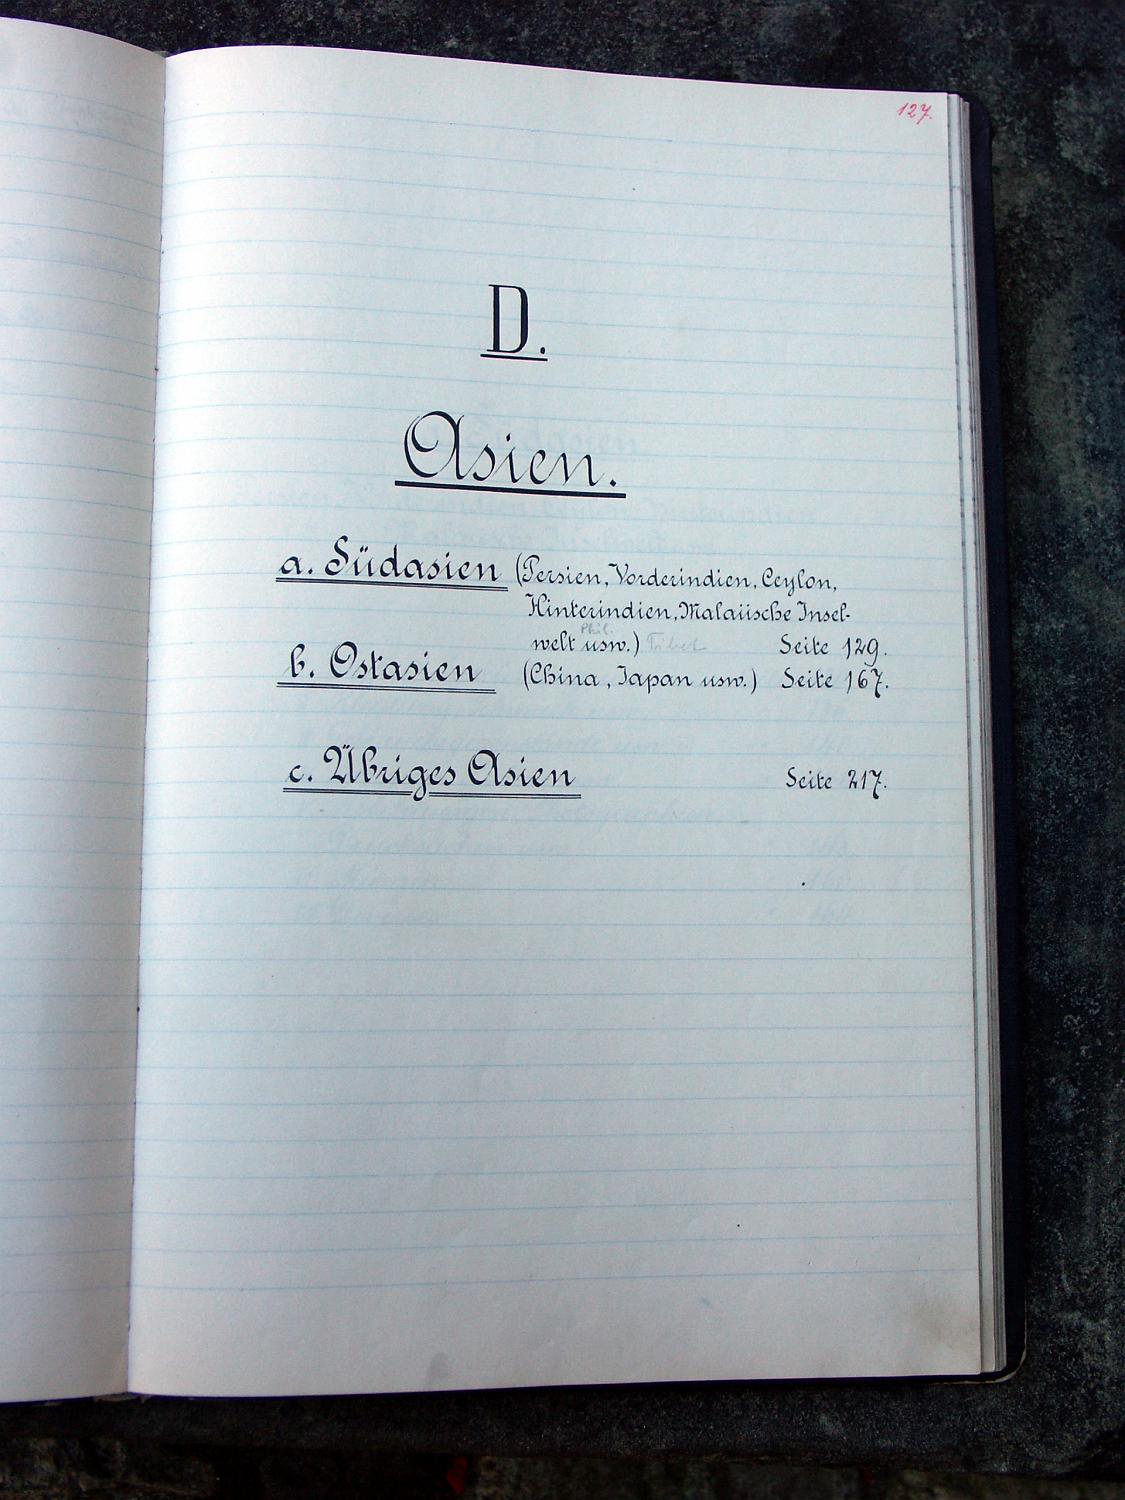 127.
D.
Asien.
a. Südasien (Persien, Vorderindien, Ceylon,
Hinterindien, Malaiische Insel-
Phil.
welt usw.) Tibet Seite 129.
b. Ostasien (China, Japan usw.) Seite 167.
c. Übriges Asien Seite 217.